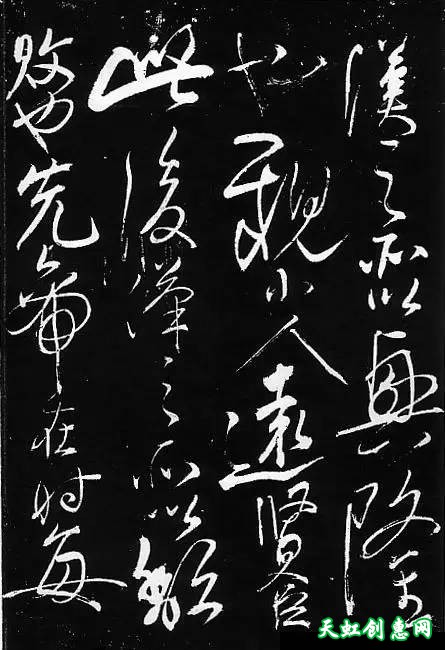 漢之所以興隆
也親小人遠賢臣
此後漢之所以頹
敗也先帝在時每
天虹创惠网